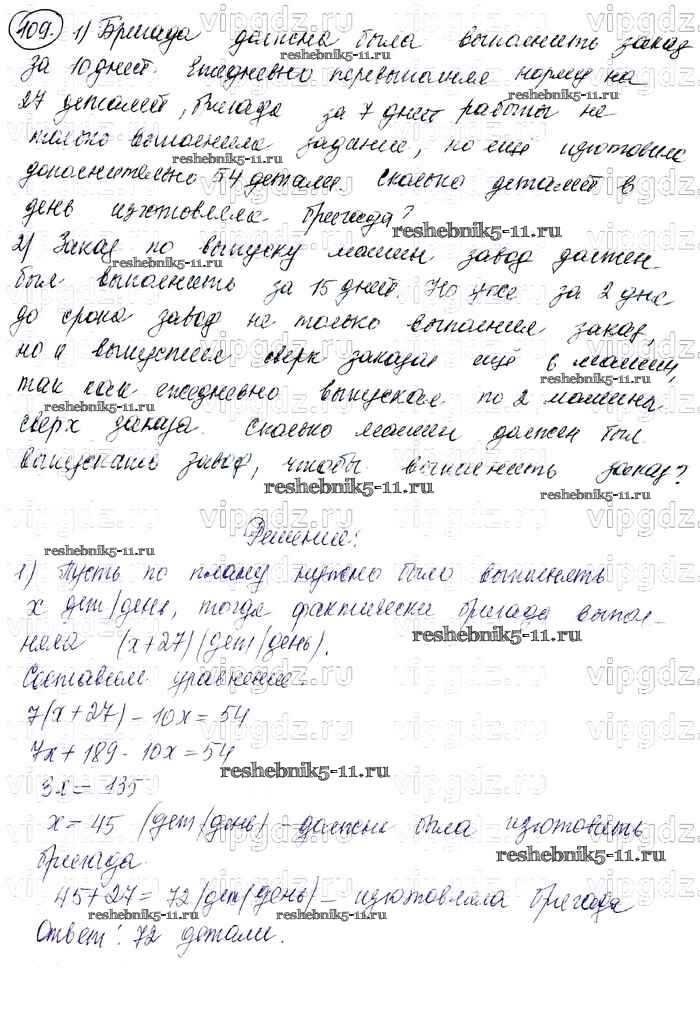 109. 1) Бригада должна была выполнить заказ
за 10 дней. Ежедневно перевыполняя норму на
27 деталей, бригада за 7 дней работы не
только выполнила задание, но ещё изготовила
дополнительно 54 детали. Сколько деталей в
день изготовляла бригада?
2) Заказ по выпуску машин завод должен
был выполнить за 15 дней. Но уже за 2 дня
до срока завод не только выполнил заказ,
но и выпустил сверх заказа ещё 6 машин,
так как ежедневно выпускал по 2 машины
сверх заказа. Сколько машин должен был
выпускать завод, чтобы выполнить заказ?
Решение:
1) Пусть по плану нужно было выполнять
x дет/день, тогда фактически бригада выпол-
няла (x+27) (дет/день).
Составим уравнение.
7(x+27) - 10x = 54
7x + 189 - 10x = 54
3x = 135
x = 45 (дет/день) - должна была изготовить
бригада
45+27 = 72 (дет/день) - изготовляла бригада
Ответ: 72 детали.
vipgdz.ru
reshebnik5-11.ru